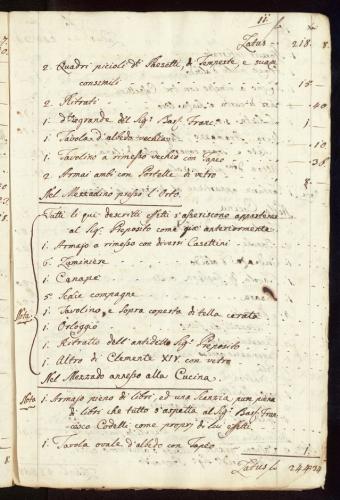 11
Latus — 218. 8
2. Quadri piccioli di Phezetti, di Tempeste, e suoi
consimili — 18 —
2. Ritrati — 40
1. d:º grande del Sig:r Bar: Franc:º — 1 —
1. Tavola d'albedo vecchia — 10
1. Tavolino a rimesso vechio con Tapeo — 36
2. Armai ambi con Portelle di vetro — 8 —
Nel Mezzadino presso l'Orto.
Tutti li qui descritti effetti s'asseriscono appartenere
al Sig:r Preposito come già anteriormente
1. Armajo a rimesso con diversi Casettini
6. Luminiere
1. Canapè
5. Scaie compagne
Nota
1. Tavolino, e sopra coperta di tella cerata
1. Orloggio
1. Ritratto dell'antidetto Sig:r Preposito
1. Altro di Clemente XIV. con vetro
Nel Mezzado annesso alla Cucina.
Nota 1. Armajo pieno di libri, ed una Scanzia pure piena
di libri che tutto s'aspetta al Sig:r Bar: Fran-
cesco Codelli come proprj di lui effetti.
1. Tavola ovale d'albedo con Tapeo — 1. —
Latus